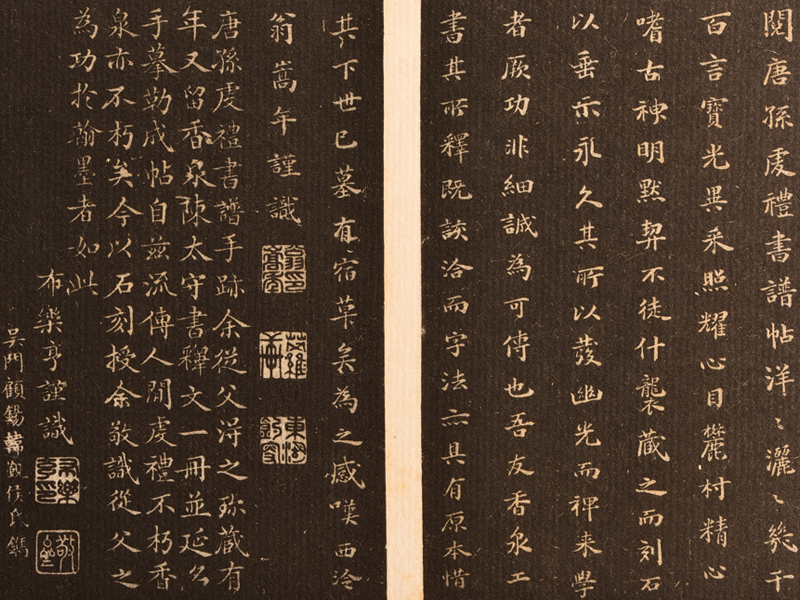 閱唐孫虔禮書譜帖洋〻灑〻幾千
百言寶光異采照耀心目麓村精心
嗜古神明默契不徒什襲藏之而刻石
以垂示永久其所以發幽光而裨来學
者厥功非細誠為可傳也吾友香泉工
書其所釋既該洽而字法亦具有原本惜
其下世已墓有宿草矣為之感嘆西泠
翁嵩年謹識
唐孫虔禮書譜手跡余從父得之珎藏有
年又留香泉陳太守書釋文一冊並延公
手摹勒成帖自茲流傳人間虔禮不朽香
泉亦不朽矣今以石刻授余敬識從父之
為功於翰墨者如此
布樂亨謹識
吳門顧錫 侯氏鐫